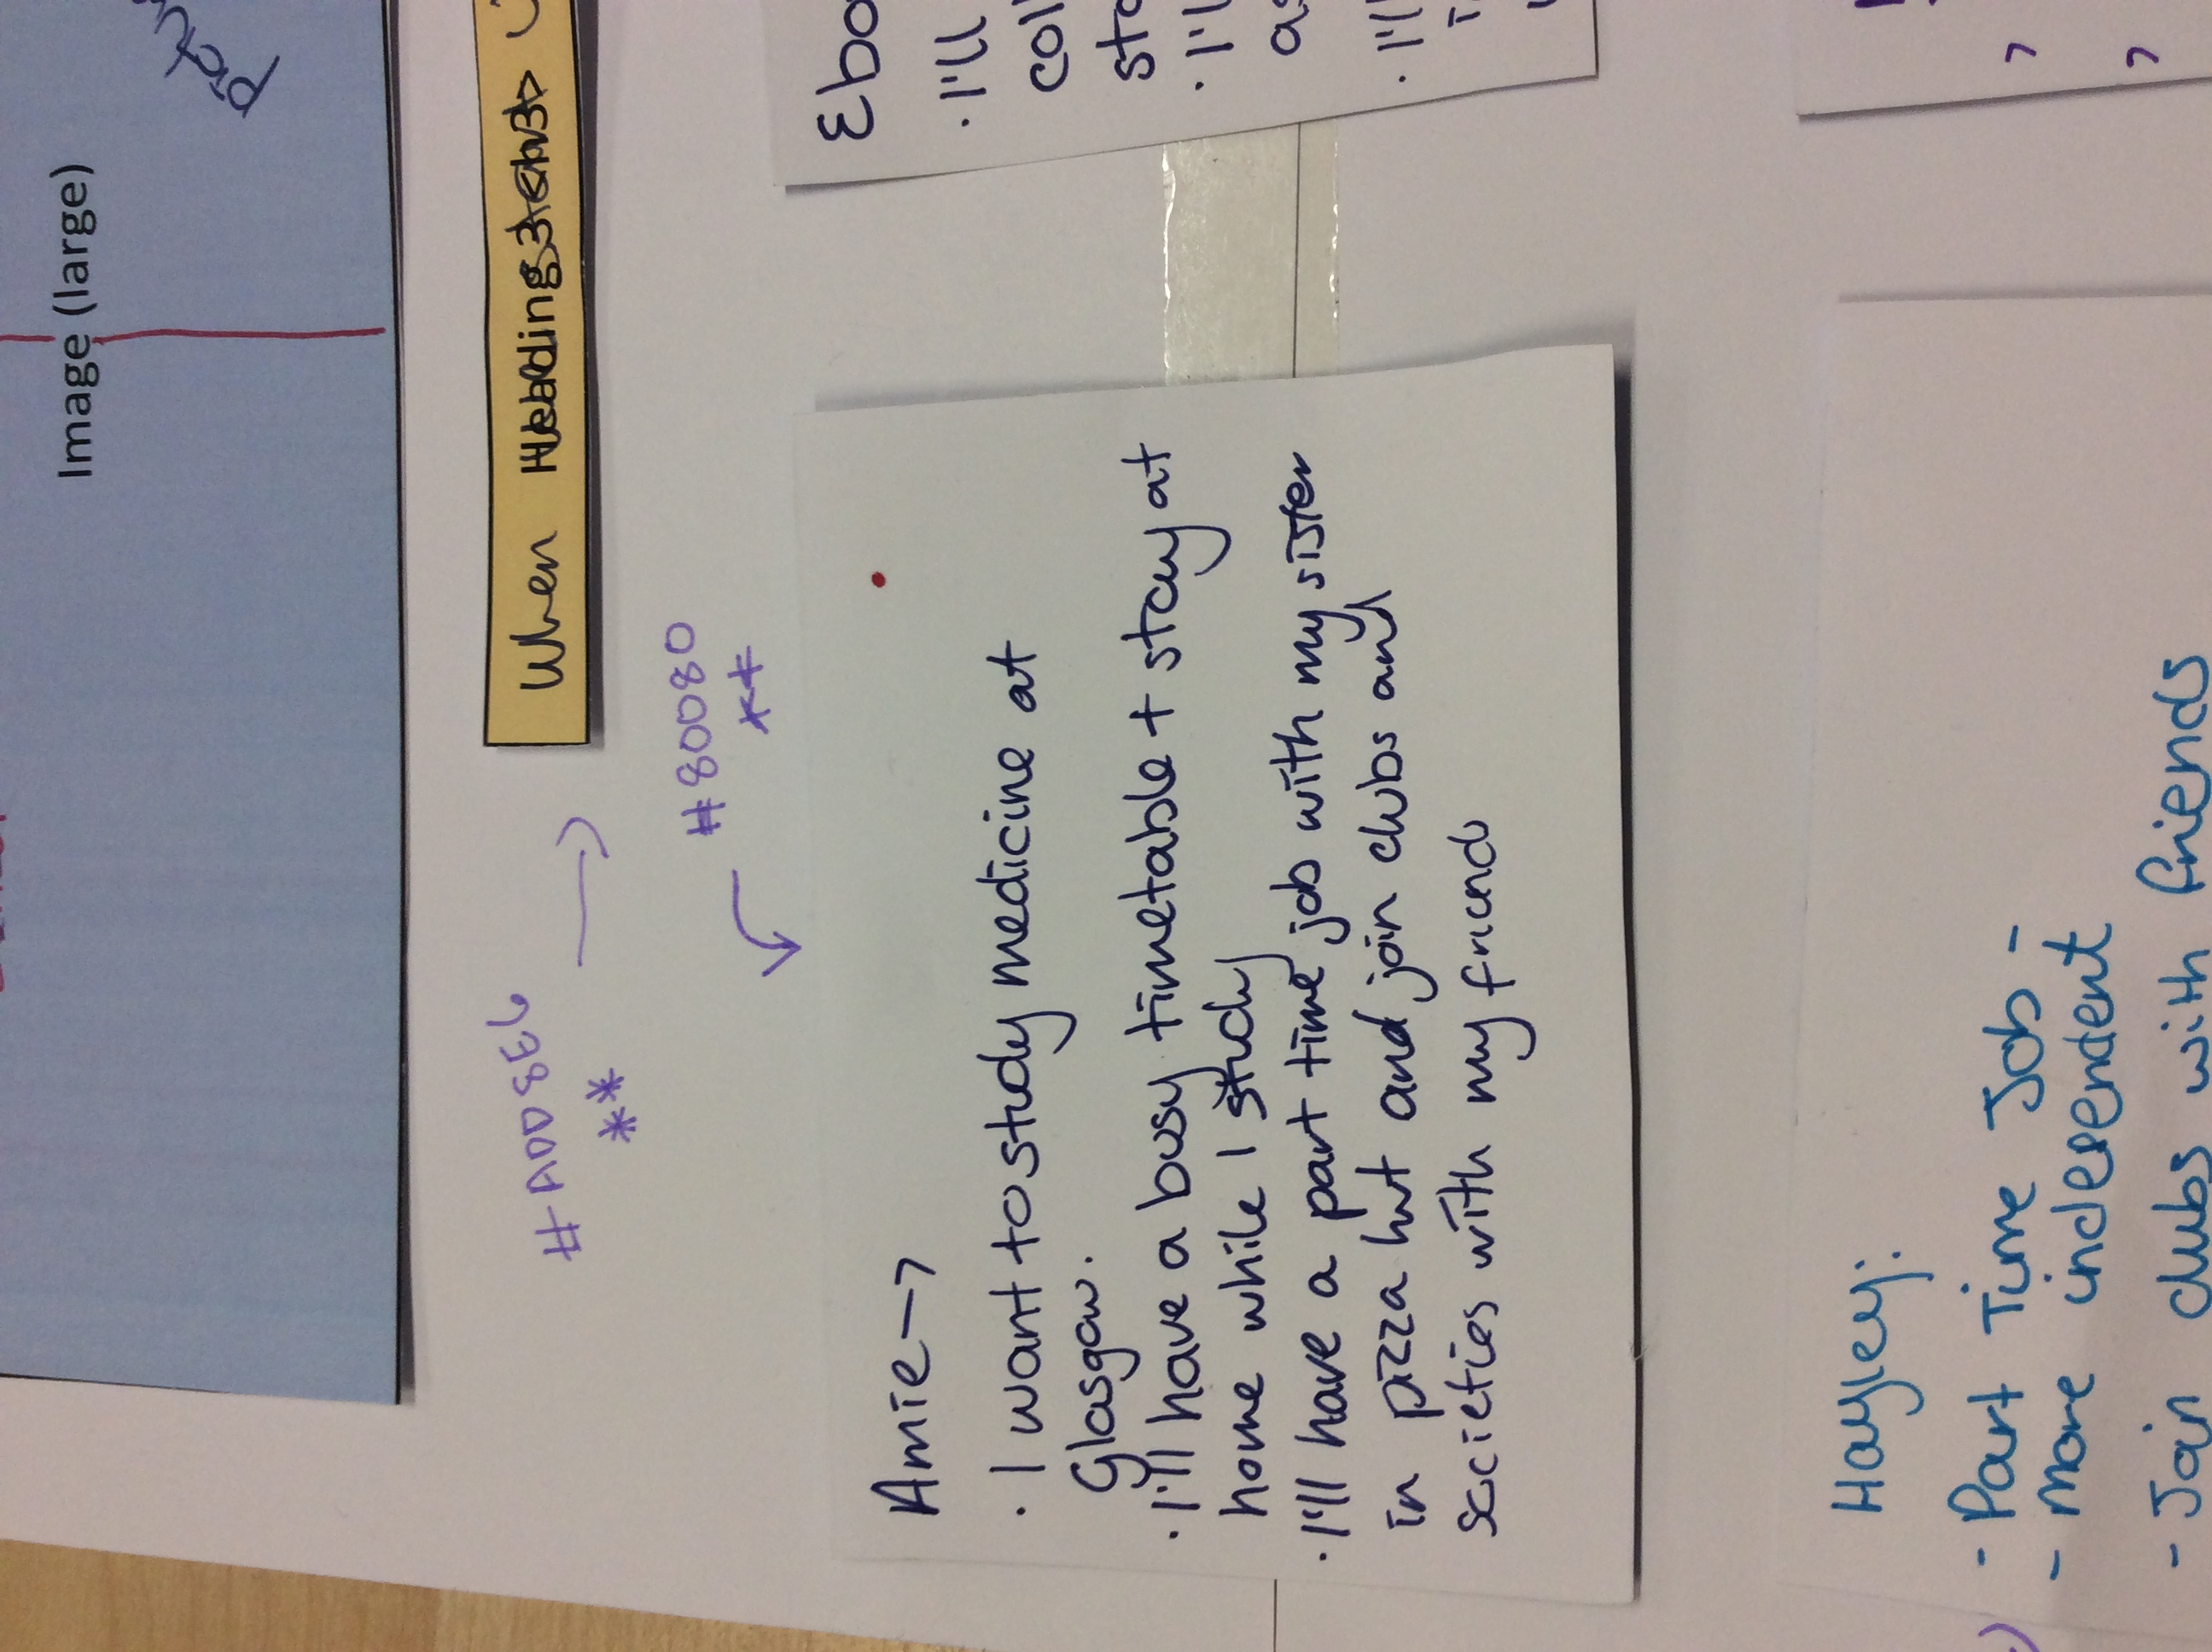 Image (large)
#ADD8E6
**
When Heading 3 <h3>
#80080
**
Amie →
· I want to study medicine at
Glasgow.
· I'll have a busy timetable + stay at
home while I study
· I'll have a part time job with my sister
in pizza hut and join clubs and
societies with my friends
· I'll
· I'll
Hayley:
- Part Time Job -
- More independent
- Join clubs with friends